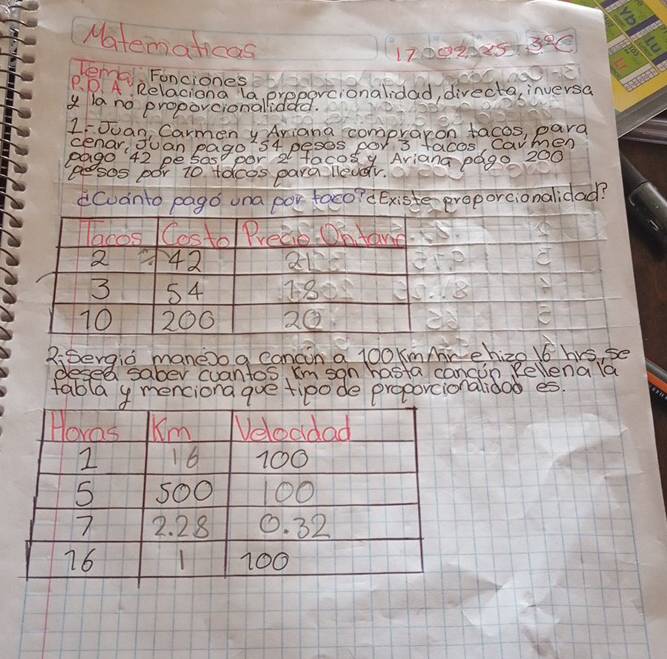 Matematicas
17 02 25 3°C
Tema: Funciones
P.D.A Relaciona la proporcionalidad, directa, inversa
y la no proporcionalidad.
1.- Juan, Carmen y Ariana compraron tacos, para
cenar, Juan pago 54 pesos por 3 tacos Carmen
pago 42 pesos por 2 tacos y Ariana pago 200
pesos por 10 tacos para llevar.
¿Cuánto pagó una por taco? ¿Existe proporcionalidad?
Tacos Costo Precio
2 42 21
3 54 18
10 200 20
2.- Sergio manejo a cancún a 100 Km/hr e hizo 16 hrs, se
desea saber cuantos Km son hasta cancún Rellena la
tabla y menciona que tipo de proporcionalidad es.
Horas Km Velocidad
1 16 100
5 500 100
7 2.28 0.32
16 1 100